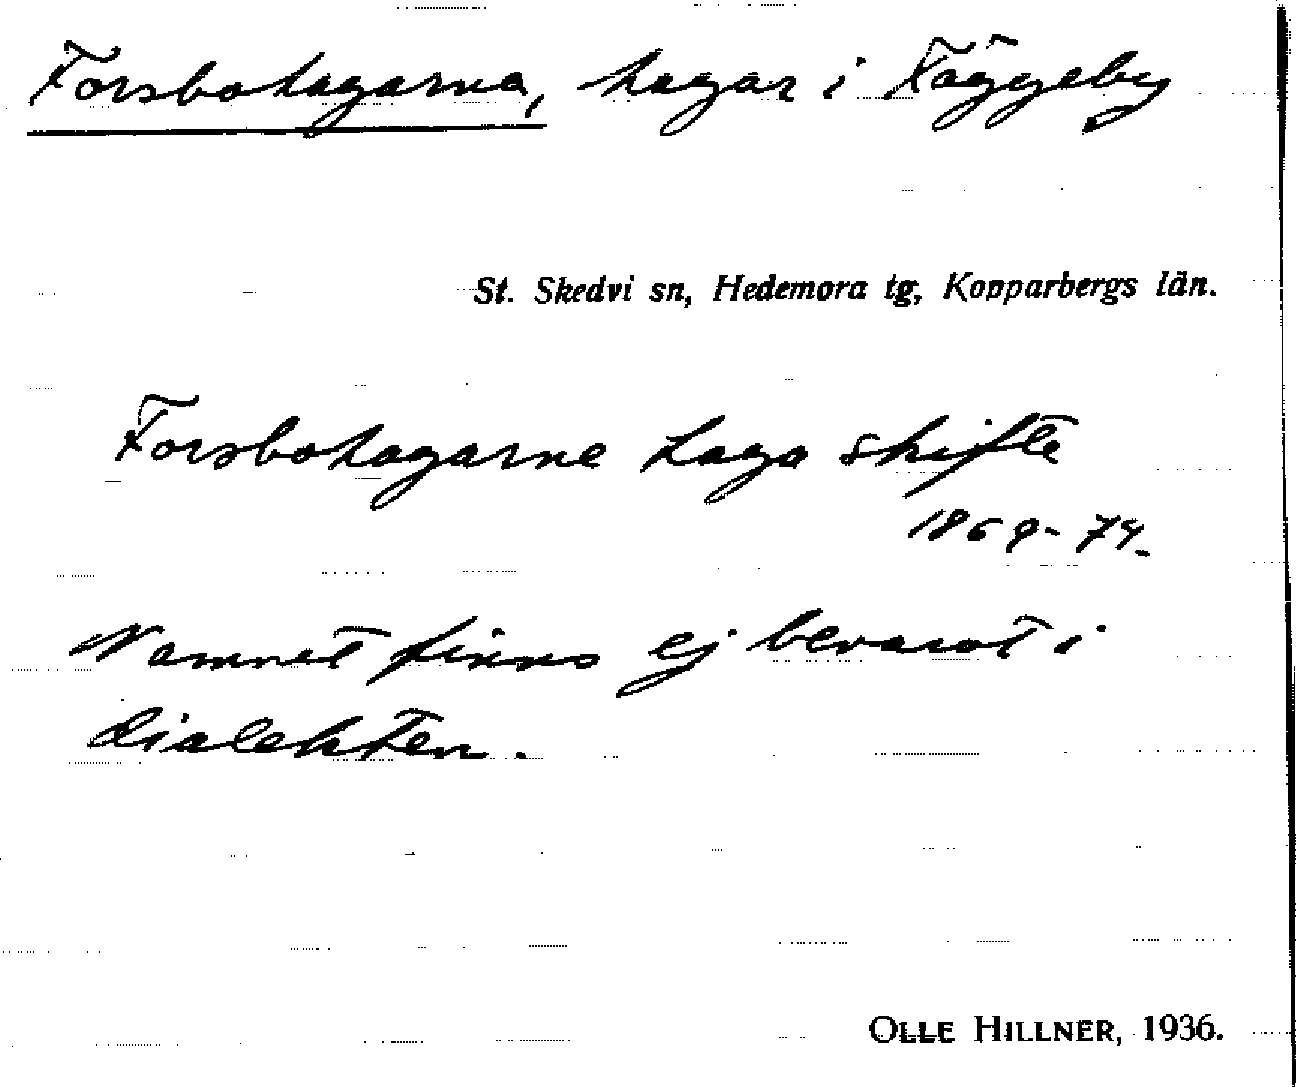 Forsbohagarna, hagar i Fäggeby
St. Skedvi sn, Hedemora tg, Kopparbergs län.
Forsbohagarne Laga skifte
1869-74.
Namnet finns ej bevarat i
dialekten.
OLLE HILLNER, 1936.